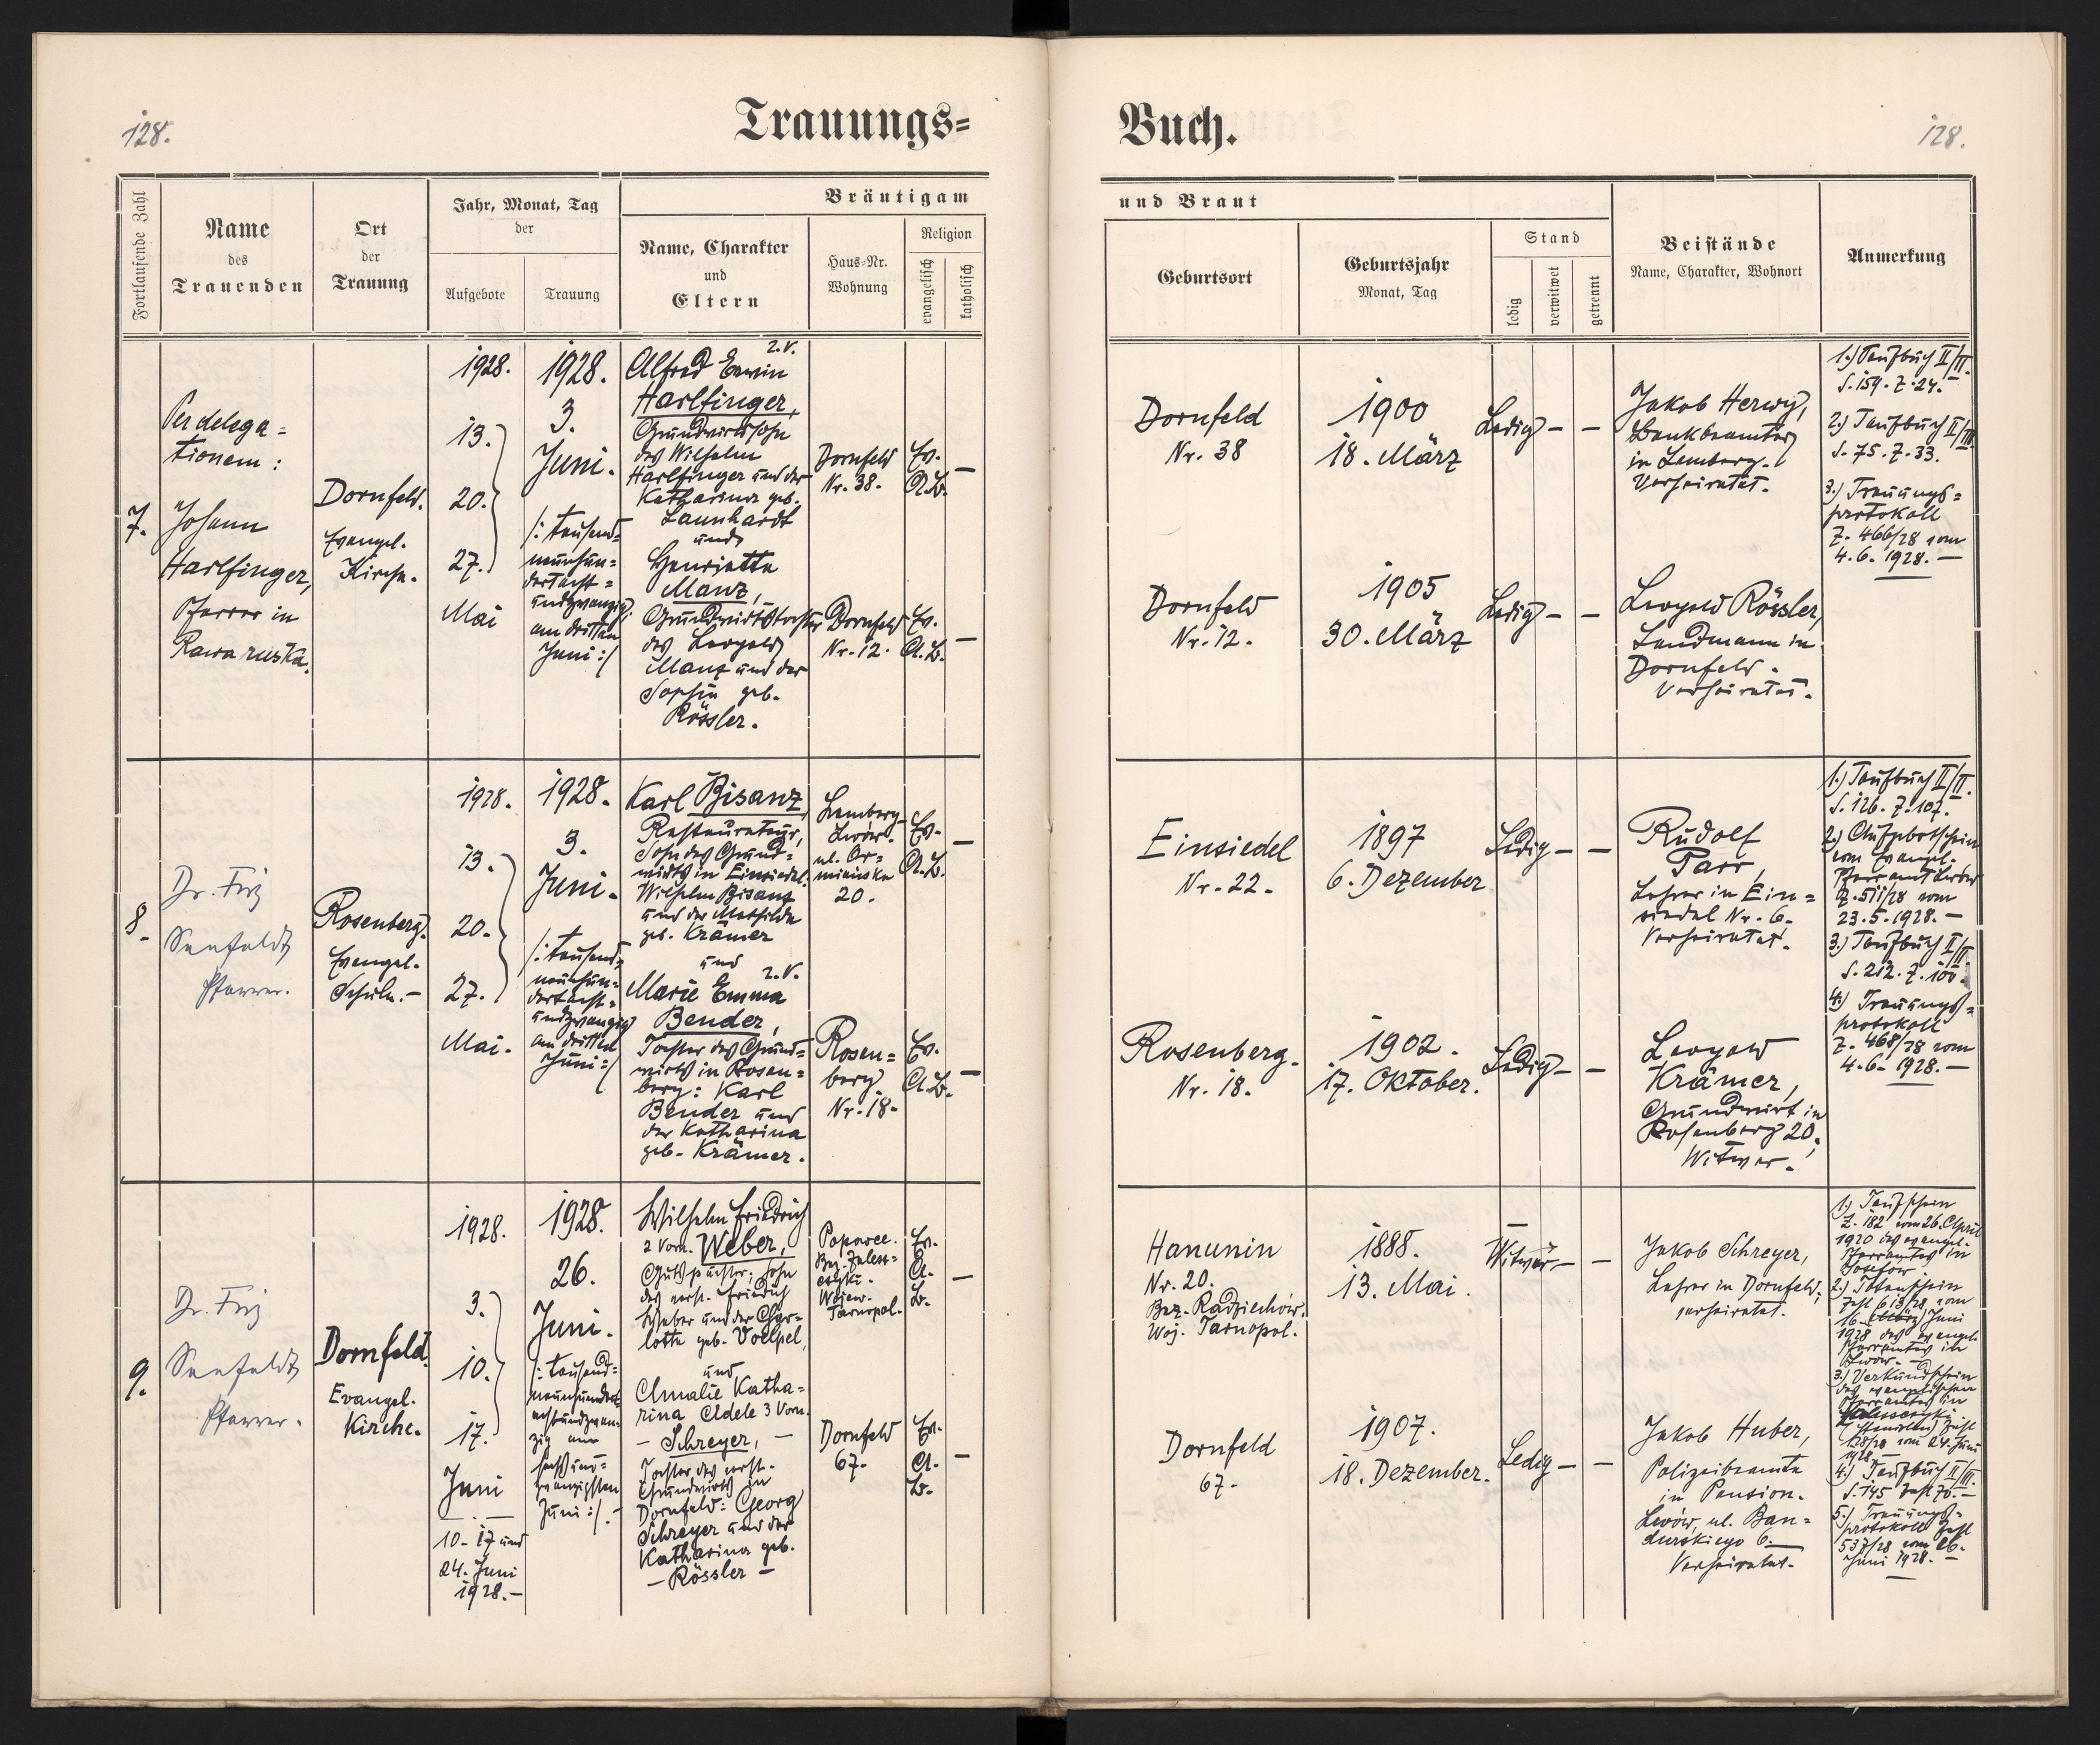 128.
Trauungs=
Buch.
128.
Fortlaufende Zahl
Name
des
Trauenden
Ort
der
Trauung
Jahr, Monat, Tag
der
Aufgebote
Trauung
Bräutigam
Name, Charakter
und
Eltern
Haus=Nr.
Wohnung
Religion
evangelisch
katholisch
und Braut
Geburtsort
Geburtsjahr
Monat, Tag
Stand
ledig
verwitwet
getrennt
Beistände
Name, Charakter, Wohnort
Anmerkung
7.
Per delega=
tionem:
Johann
Harlfinger,
Pfarrer in
Rawa ruska.
Dornfeld.
Evangel.
Kirche.
1928.
13.
20.
27.
Mai
1928.
3.
Juni.
/: tausend=
neunhun=
dertacht=
undzwanzig,
am dritten
Juni :/
2. V.
Alfred Erwin
Harlfinger,
Grundwirtssohn
des Wilhelm
Harlfinger und der
Katharina geb.
Launhardt
und
Henriette
Manz,
Grundwirtstochter
des Leopold
Manz und der
Sophie geb.
Rössler.
Dornfeld
Nr. 38.
Dornfeld
Nr. 12.
Ev.
A.B.
—
Ev.
A.B.
—
Dornfeld
Nr. 38
Dornfeld
Nr. 12.
1900
18. März
1905
30. März
Ledig — —
Ledig — —
Jakob Herwy,
Bankbeamter
in Lemberg.
Verheiratet.
Leopold Rössler,
Landmann in
Dornfeld.
Verheiratet.
1.) Taufbuch II/II.
S. 159. Z. 24.
2.) Taufbuch II/III
S. 75. Z. 33.
3.) Trauungs=
protokoll
Z. 466/28 vom
4.6. 1928. —
8.
Dr. Friz
Seefeldt
Pfarrer.
Rosenberg.
Evangel.
Schule. —
1928.
13.
20.
27.
Mai.
1928.
3.
Juni.
/: tausend=
neunhun=
dertacht=
undzwanzig
am dritten
Juni :/
Karl Bisanz,
Restaurateur,
Sohn des Grund=
wirts in Einsiedel:
Wilhelm Bisanz
und der Mathilde
geb. Krämer
und
2. V.
Marie Emma
Bender,
Tochter des Grund=
wirts in Rosen=
berg: Karl
Bender und
der Katharina
geb. Krämer.
Lemberg
Lwów.
ul. Or=
mianska
20.
Rosen=
berg
Nr. 18.
Ev.
A.B.
—
Ev.
A.B.
—
Einsiedel
Nr. 22.
Rosenberg.
Nr. 18.
1897
6. Dezember
1902.
17. Oktober.
Ledig — —
Ledig — —
Rudolf
Parr,
Lehrer in Ein=
siedel Nr. 6.
Verheiratet.
Leopold
Krämer,
Grundwirt in
Rosenberg 20,
Witwer.
1.) Taufbuch II/II.
S. 126. Z. 107.
2.) Aufgebotschein
vom Evangel.
Pfarramt Lwów
Z. 511/28 vom
23.5.1928. —
3.) Taufbuch II/II.
S. 212. Z. 100.
4.) Trauungs=
protokoll
Z. 468/28 vom
4.6. 1928. —
9.
Dr. Friz
Seefeldt
Pfarrer.
Dornfeld.
Evangel.
Kirche.
1928.
3.
10.
17.
Juni
10. 17 und
24. Juni
1928. —
1928.
26.
Juni.
/: tausend=
neunhundert
achtundzwan=
zig am
sechsund=
zwanzigsten
Juni :/. —
Wilhelm Friedrich
2 Vorn. Weber,
Gutspächter; Sohn
des verst. Friedrich
Weber und der Char=
lotte geb. Voelpel,
und
Amalie Katha=
rina Adele 3 Vorn.
— Schreyer, —
Tochter des verst.
Grundwirts in
Dornfeld: Georg
Schreyer und der
Katharina geb.
— Rössler —
Popowce.
Bez. Zalesz=
czyki.
Wojew.
Tarnopol.
Dornfeld
67.
Ev.
A.
B.
—
Ev.
A.
B.
—
Hanunin
Nr. 20.
Bez. Radziechów.
Woj. Tarnopol.
Dornfeld
67.
1888.
13. Mai.
1907.
18. Dezember.
— Witwer — —
Ledig — —
Jakob Schreyer,
Lehrer in Dornfeld,
verheiratet.
Jakob Huber,
Polizeibeamte
in Pension.
Lwów, ul. Ban=
durskiego 6.
Verheiratet.
1.) Taufschein
Z. 182 vom 26. April
1920 des evangel.
Pfarramtes in
Josefow
2.) Totenschein
Zahl 613/28 vom
16. Juni
1928 des evangel.
Pfarramtes in
Lwow. —
3.) Verkündschein
des evangelischen
Pfarramtes in
Zahl
128/28 vom 24. Juni
1928.
4.) Taufbuch II/III.
S. 145 Zahl 70. —
5.) Trauungs=
protokoll Zahl
537/28 vom 26.
Juni 1928. —